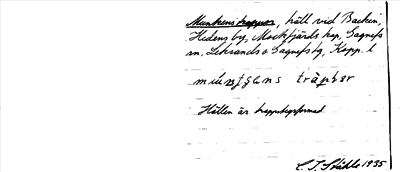 Munkens trappor, häll vid Backen,
Hedens by, Mockfjärds kap, Gagnefs
sn, Leksands o Gagnefs tg, Kopp. l
Hällen är trappstegsformad
C. I. Ståhle 1935